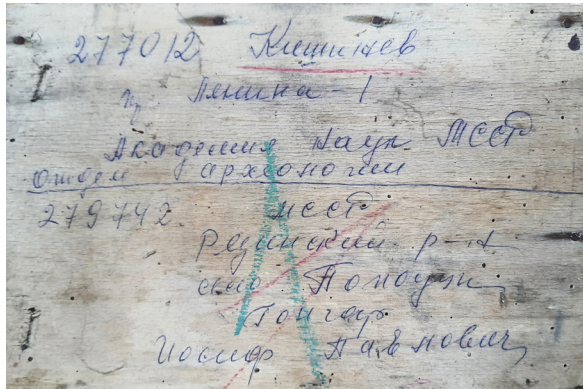 277012 Кишинев
пр Ленина - 1
Академия Наук МССР
отдел археологии
279742 МССР
Резинский р-н
село
Гончар
Иосиф Павлович